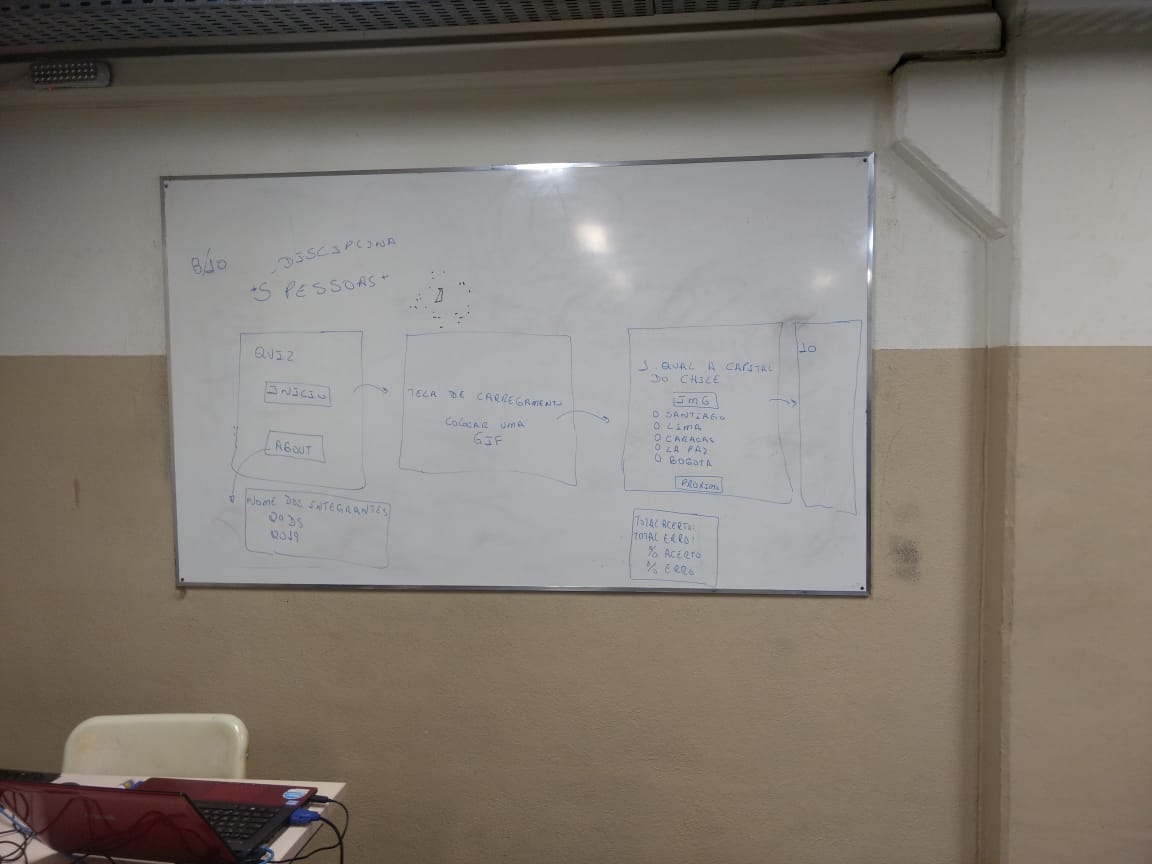 8/10
DISCIPLINA
*5 PESSOAS*
QUIZ
INICIO
ABOUT
NOME DOS INTEGRANTES
2019
TELA DE CARREGAMENTO
COLOCAR UMA
GIF
1. QUAL A CAPITAL
DO CHILE
IMG
O SANTIAGO
O LIMA
O CARACAS
O LA PAZ
O BOGOTA
PROXIMO
10
TOTAL ACERTO:
TOTAL ERRO:
% ACERTO
% ERRO